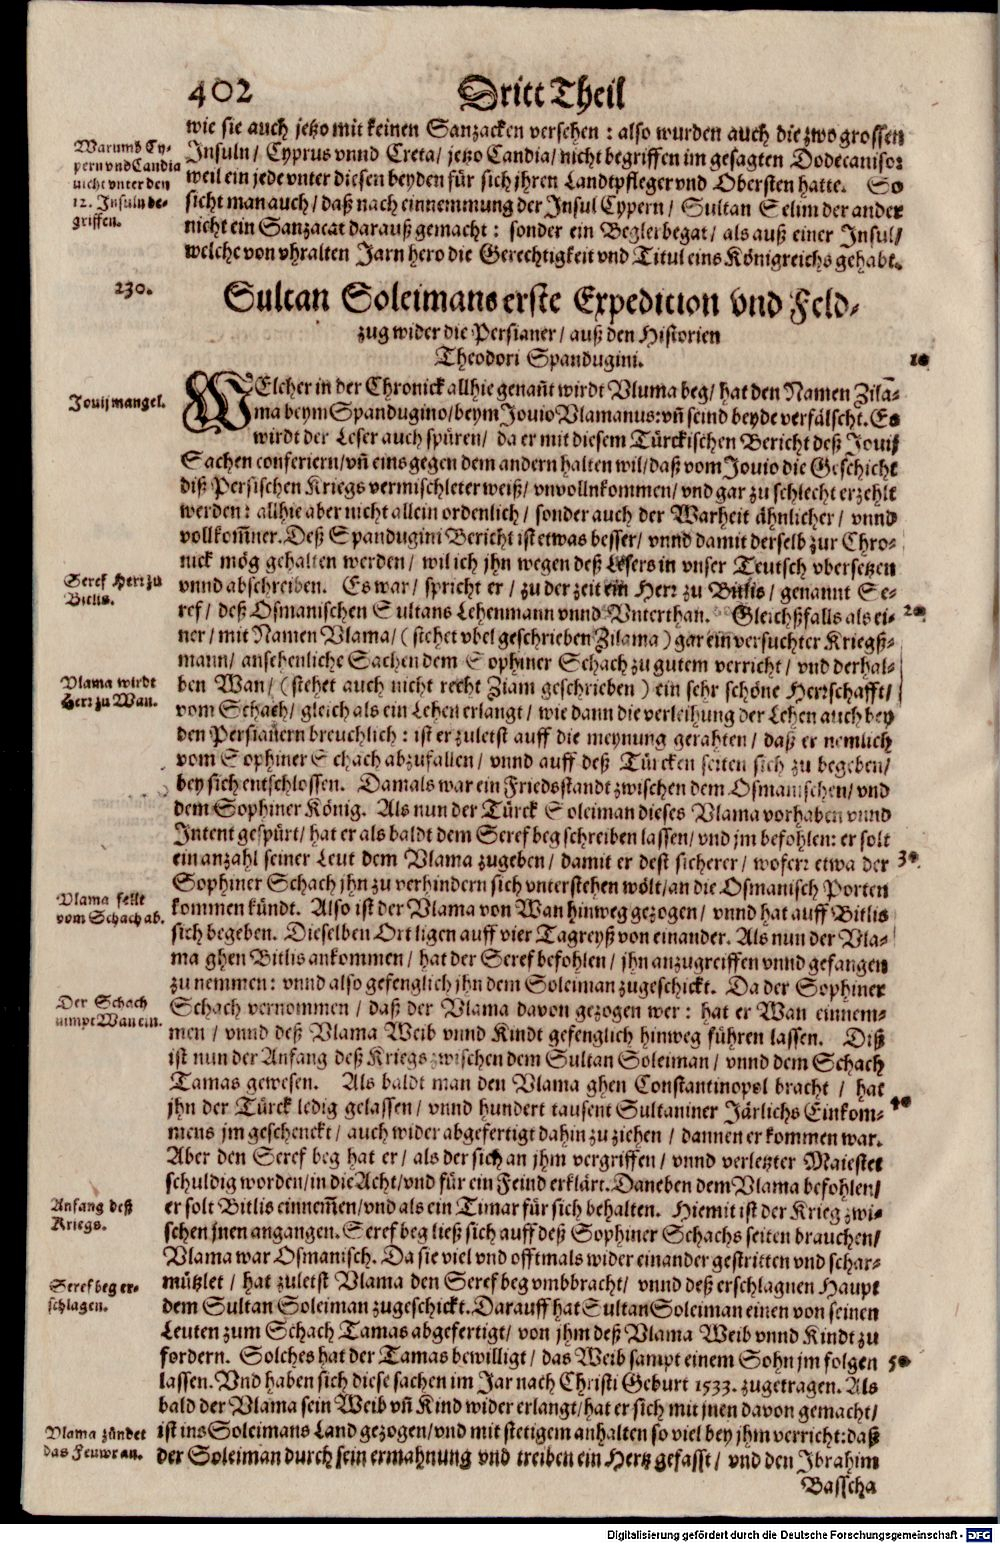 402 Dritt Theil
wie sie auch jetzo mit keinen Sanzacken versehen : also wurden auch die zwo grossen
Warumb Cy-
pern vnd Candia
nicht vnter den
12. Insuln be-
griffen.
Insuln / Cyprus vnnd Creta / jetzo Candia / nicht begriffen im gesagten Dodecaniso:
weil ein jede vnter diesen beyden für sich jhren Landtpfleger vnd Obersten hatte. So
sicht man auch / daß nach einnemmung der Insul Cypern / Sultan Selim der ander
nicht ein Sanzacat darauß gemacht : sonder ein Beglerbegat / als auß einer Insul /
welche von vhralten Jarn hero die Gerechtigkeit vnd Titul eins Königreichs gehabt.
230.
Sultan Soleimans erste Expedition vnd Feld-
zug wider die Persianer / auß den Historien
Theodori Spandugini.
10
Jouij mangel.
WElcher in der Chronick allhie genañt wirdt Vluma beg / hat den Namen Zila-
ma beym Spandugino / beym Jouio Vlamanus: vñ seind beyde verfälscht. Es
wirdt der Leser auch spüren / da er mit diesem Türckischen Bericht deß Jouij
Sachen conferiern / vñ eins gegen dem andern halten wil / daß vom Jouio die Geschicht
diß Persischen Kriegs vermischleter weiß / vnvollnkommen / vnd gar zu schlecht erzehlt
werden : allhie aber nicht allein ordenlich / sonder auch der Warheit ähnlicher / vnnd
vollkom̃ner. Deß Spandugini Bericht ist etwas besser / vnnd damit derselb zur Chro-
nick mög gehalten werden / wil ich jhn wegen deß Lesers in vnser Teutsch vbersetzen
Seref Herr zu
Bitlis.
vnnd abschreiben. Es war / spricht er / zu der zeit ein Herr zu Bitlis / genannt Se-
ref / deß Osmanischen Sultans Lehenmann vnnd Vnterthan. Gleichßfalls als ei-
20
ner / mit Namen Vlama / ( stehet vbel geschrieben Zilama ) gar ein versuchter Kriegß-
mann / ansehenliche Sachen dem Sophiner Schach zu gutem verricht / vnd derhal-
Vlama wirdt
Herr zu Wan.
ben Wan / ( stehet auch nicht recht Ziam geschrieben ) ein sehr schöne Herrschafft /
vom Schach / gleich als ein Lehen erlangt / wie dann die verleihung der Lehen auch bey
den Persianern breuchlich : ist er zuletst auff die meynung gerahten / daß er nemlich
vom Sophiner Schach abzufallen / vnnd auff deß Türcken seiten sich zu begeben /
bey sich entschlossen. Damals war ein Friedsstandt zwischen dem Osmanischen / vnd
dem Sophiner König. Als nun der Türck Soleiman dieses Vlama vorhaben vnnd
Intent gespürt / hat er als baldt dem Seref beg schreiben lassen / vnd jm befohlen : er solt
ein anzahl seiner Leut dem Vlama zugeben / damit er dest sicherer / wofern etwa der
30
Sophiner Schach jhn zu verhindern sich vnterstehen wölt / an die Osmanisch Porten
Vlama fellt
vom Schach ab.
kommen kündt. Also ist der Vlama von Wan hinweg gezogen / vnnd hat auff Bitlis
sich begeben. Dieselben Ort ligen auff vier Tagreyß von einander. Als nun der Vla-
ma ghen Bitlis ankommen / hat der Seref befohlen / jhn anzugreiffen vnnd gefangen
zu nemmen : vnnd also gefenglich jhn dem Soleiman zugeschickt. Da der Sophiner
Der Schach
nimpt Wan ein.
Schach vernommen / daß der Vlama davon gezogen wer : hat er Wan einnem-
men / vnnd deß Vlama Weib vnnd Kindt gefenglich hinweg führen lassen. Diß
ist nun der Anfang deß Kriegs zwischen dem Sultan Soleiman / vnnd dem Schach
Tamas gewesen. Als baldt man den Vlama ghen Constantinopel bracht / hat
jhn der Türck ledig gelassen / vnnd hundert tausent Sultaniner Järlichs Einkom-
40
mens jm geschenckt / auch wider abgefertigt dahin zu ziehen / dannen er kommen war.
Aber den Seref beg hat er / als der sich an jhm vergriffen / vnnd verletzter Maiestet
schuldig worden / in die Acht / vnd für ein Feind erklärt. Daneben dem Vlama befohlen /
Anfang deß
Kriegs.
er solt Bitlis einnem̃en / vnd als ein Timar für sich behalten. Hiemit ist der Krieg zwi-
schen jnen angangen. Seref beg ließ sich auff deß Sophiner Schachs seiten brauchen /
Vlama war Osmanisch. Da sie viel vnd offtmals wider einander gestritten vnd schar-
Seref beg er-
schlagen.
mützlet / hat zuletst Vlama den Seref beg vmbbracht / vnnd deß erschlagnen Haupt
dem Sultan Soleiman zugeschickt. Darauff hat Sultan Soleiman einen von seinen
Leuten zum Schach Tamas abgefertigt / von jhm deß Vlama Weib vnnd Kindt zu
fordern. Solches hat der Tamas bewilligt / das Weib sampt einem Sohn jm folgen
50
lassen. Vnd haben sich diese sachen im Jar nach Christi Geburt 1533. zugetragen. Als
bald der Vlama sein Weib vñ Kind wider erlangt / hat er sich mit jnen davon gemacht /
Vlama zündet
das Feuwr an.
ist ins Soleimans Land gezogen / vnd mit stetigem anhalten so viel bey jhm verricht: daß
der Soleiman durch sein ermahnung vnd treiben ein Hertz gefasst / vnd den Ibrahim
Basscha
Digitalisierung gefördert durch die Deutsche Forschungsgemeinschaft - DFG